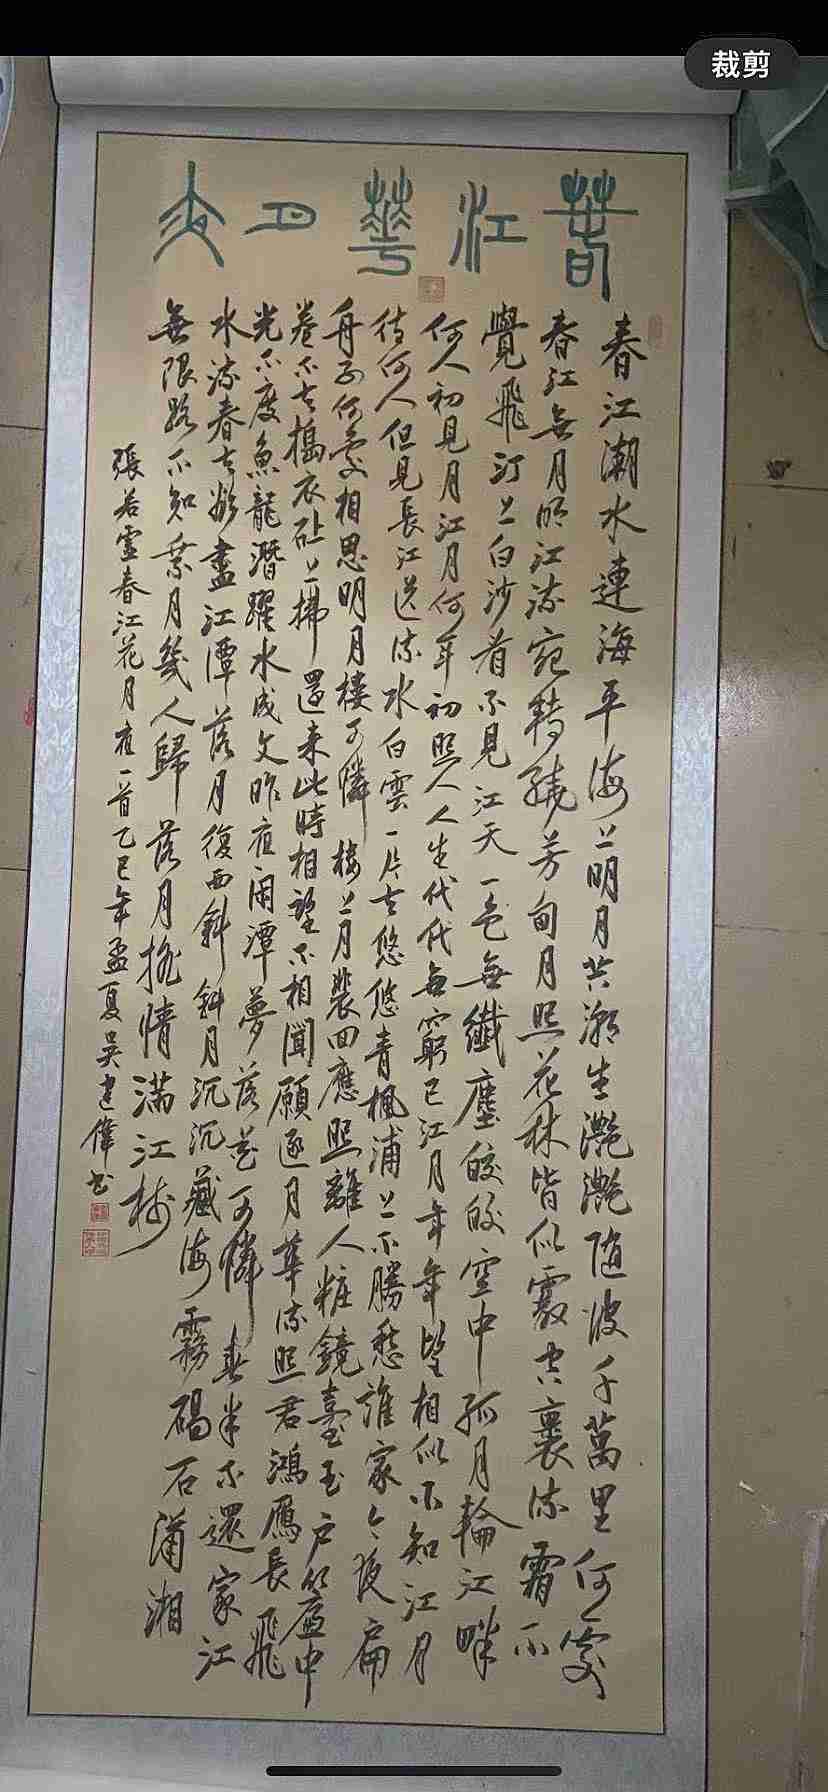 裁剪
春江華月夜
春江潮水連海平海上明月共潮生灧灧隨波千萬里何處
春江無月明江流宛轉繞芳甸月照花林皆似霰空裏流霜不
覺飛汀上白沙看不見江天一色無纖塵皎皎空中孤月輪江畔
何人初見月江月何年初照人人生代代無窮已江月年年望相似不知江月
待何人但見長江送流水白雲一片去悠悠青楓浦上不勝愁誰家今夜扁
舟子何處相思明月樓可憐樓上月裴回應照離人粧鏡臺玉戶簾中
卷不去搗衣砧上拂還來此時相望不相聞願逐月華流照君鴻鴈長飛
光不度魚龍潛躍水成文昨夜閑潭夢落花可憐春半不還家江
水流春去欲盡江潭落月復西斜斜月沉沉藏海霧碣石瀟湘
無限路不知乘月幾人歸落月搖情滿江樹
張若虛春江花月夜一首乙巳年孟夏吳建偉書